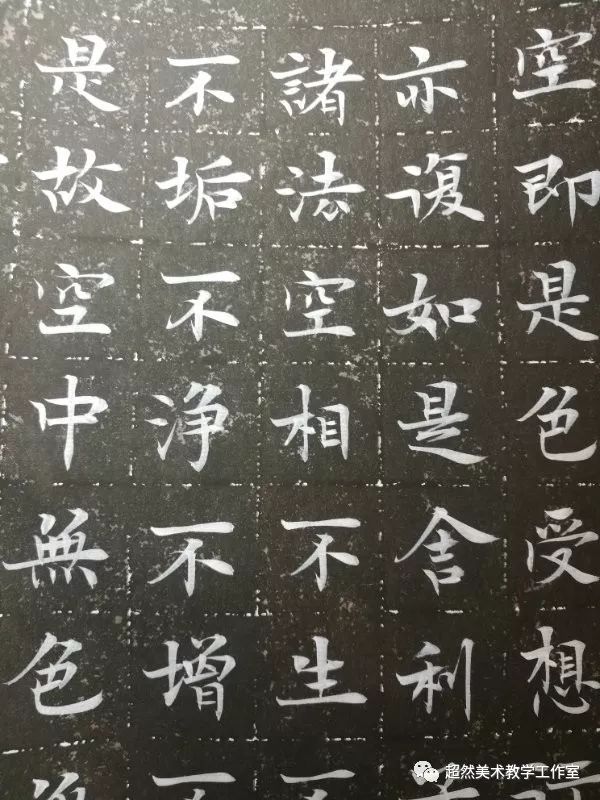 空即是色受想
亦復如是舍利
諸法空相不生
不垢不净不增
是故空中無色
超然美术教学工作室